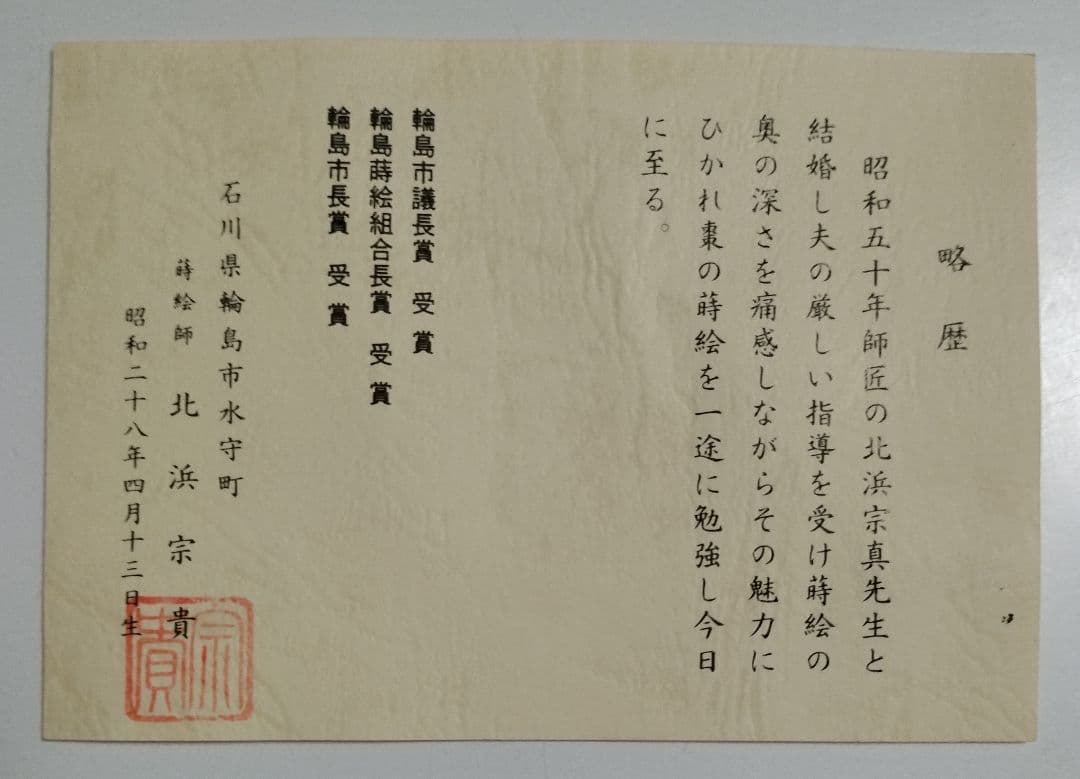 略歴
昭和五十年師匠の北浜宗真先生と
結婚し夫の厳しい指導を受け蒔絵の
奥の深さを痛感しながらその魅力に
ひかれ棗の蒔絵を一途に勉強し今日
に至る。
輪島市議長賞 受賞
輪島蒔絵組合長賞 受賞
輪島市長賞 受賞
石川県輪島市水守町
蒔絵師 北浜宗貴
昭和二十八年四月十三日生
宗貴